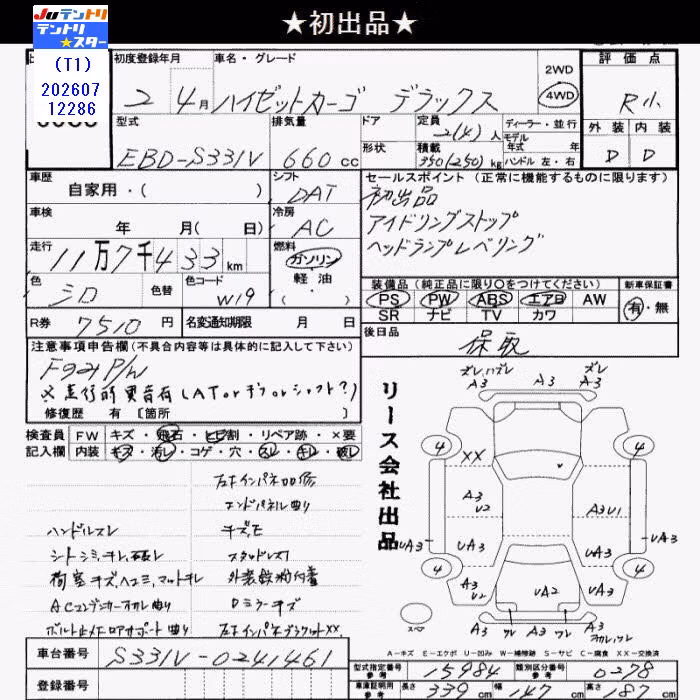 ★初出品★
JUテントリ
テントリ
★スター
(T1)
202607
12286
初度登録年月
車名・グレード
2WD
4WD
評価点
2 4月 ハイゼットカーゴ デラックス
R小
型式
排気量
ドア
定員
2(4)人
ディーラー・並行
モデル
年式 年
外装 内装
EBD-S331V
660cc
形状
積載
350(250)kg
ハンドル 左・右
D D
車歴
自家用・( )
シフト
DAT
セールスポイント (正常に機能するものに限ります)
初出品
アイドリングストップ
ヘッドランプレベリング
車検
年 月( 日)
冷房
AC
走行
11万7千433km
燃料
ガソリン
軽油
( )
色
シロ
色替
色コード
W19
装備品 (純正品に限り○をつけてください)
新車保証書
PS PW ABS エアB AW
SR ナビ TV カワ
有・無
R券
7510円
名変通知期限 月 日
後日品
保取
注意事項申告欄 (不具合内容等は具体的に記入して下さい)
※走行時異音有(ATorデフorシャフト?)
修復歴 有 [箇所 ]
検査員
記入欄
FW キズ・飛石・ヒビ割・リペア跡・×要
内装 キズ・汚レ・コゲ・穴・スレ・キレ・破レ
左右インパネ凹傷
エンドパネル曲り
ハンドルスレ
キズ、凹
シートシミ、キレ、破レ
スタッドレス1
荷室キズ、ヘコミ、マットキレ
外装鉄粉付着
ACコンデンサーカカレ曲り
Dミラーキズ
ボルト止メロアサポート曲り
左右インパネブラケットXX、
リース会社出品
ズレ、ハズレ
A3
A3
ズレ
A3
4
4
XX
A3
U2
A3U1
UA3
UA3
UA3
A3
4
4
A3
U2
UA2
A3
スペア
A3
ワレ
ワレ
A3
A-キズ E-エクボ U-凹み W-補修跡 S-サビ C-腐食 XX-交換済
車台番号
S331V-0241461
登録番号
型式指定番号
参考
15984
類別区分番号
参考
0278
車庫証明用
参考
長さ
339cm
幅
147cm
高さ
187cm